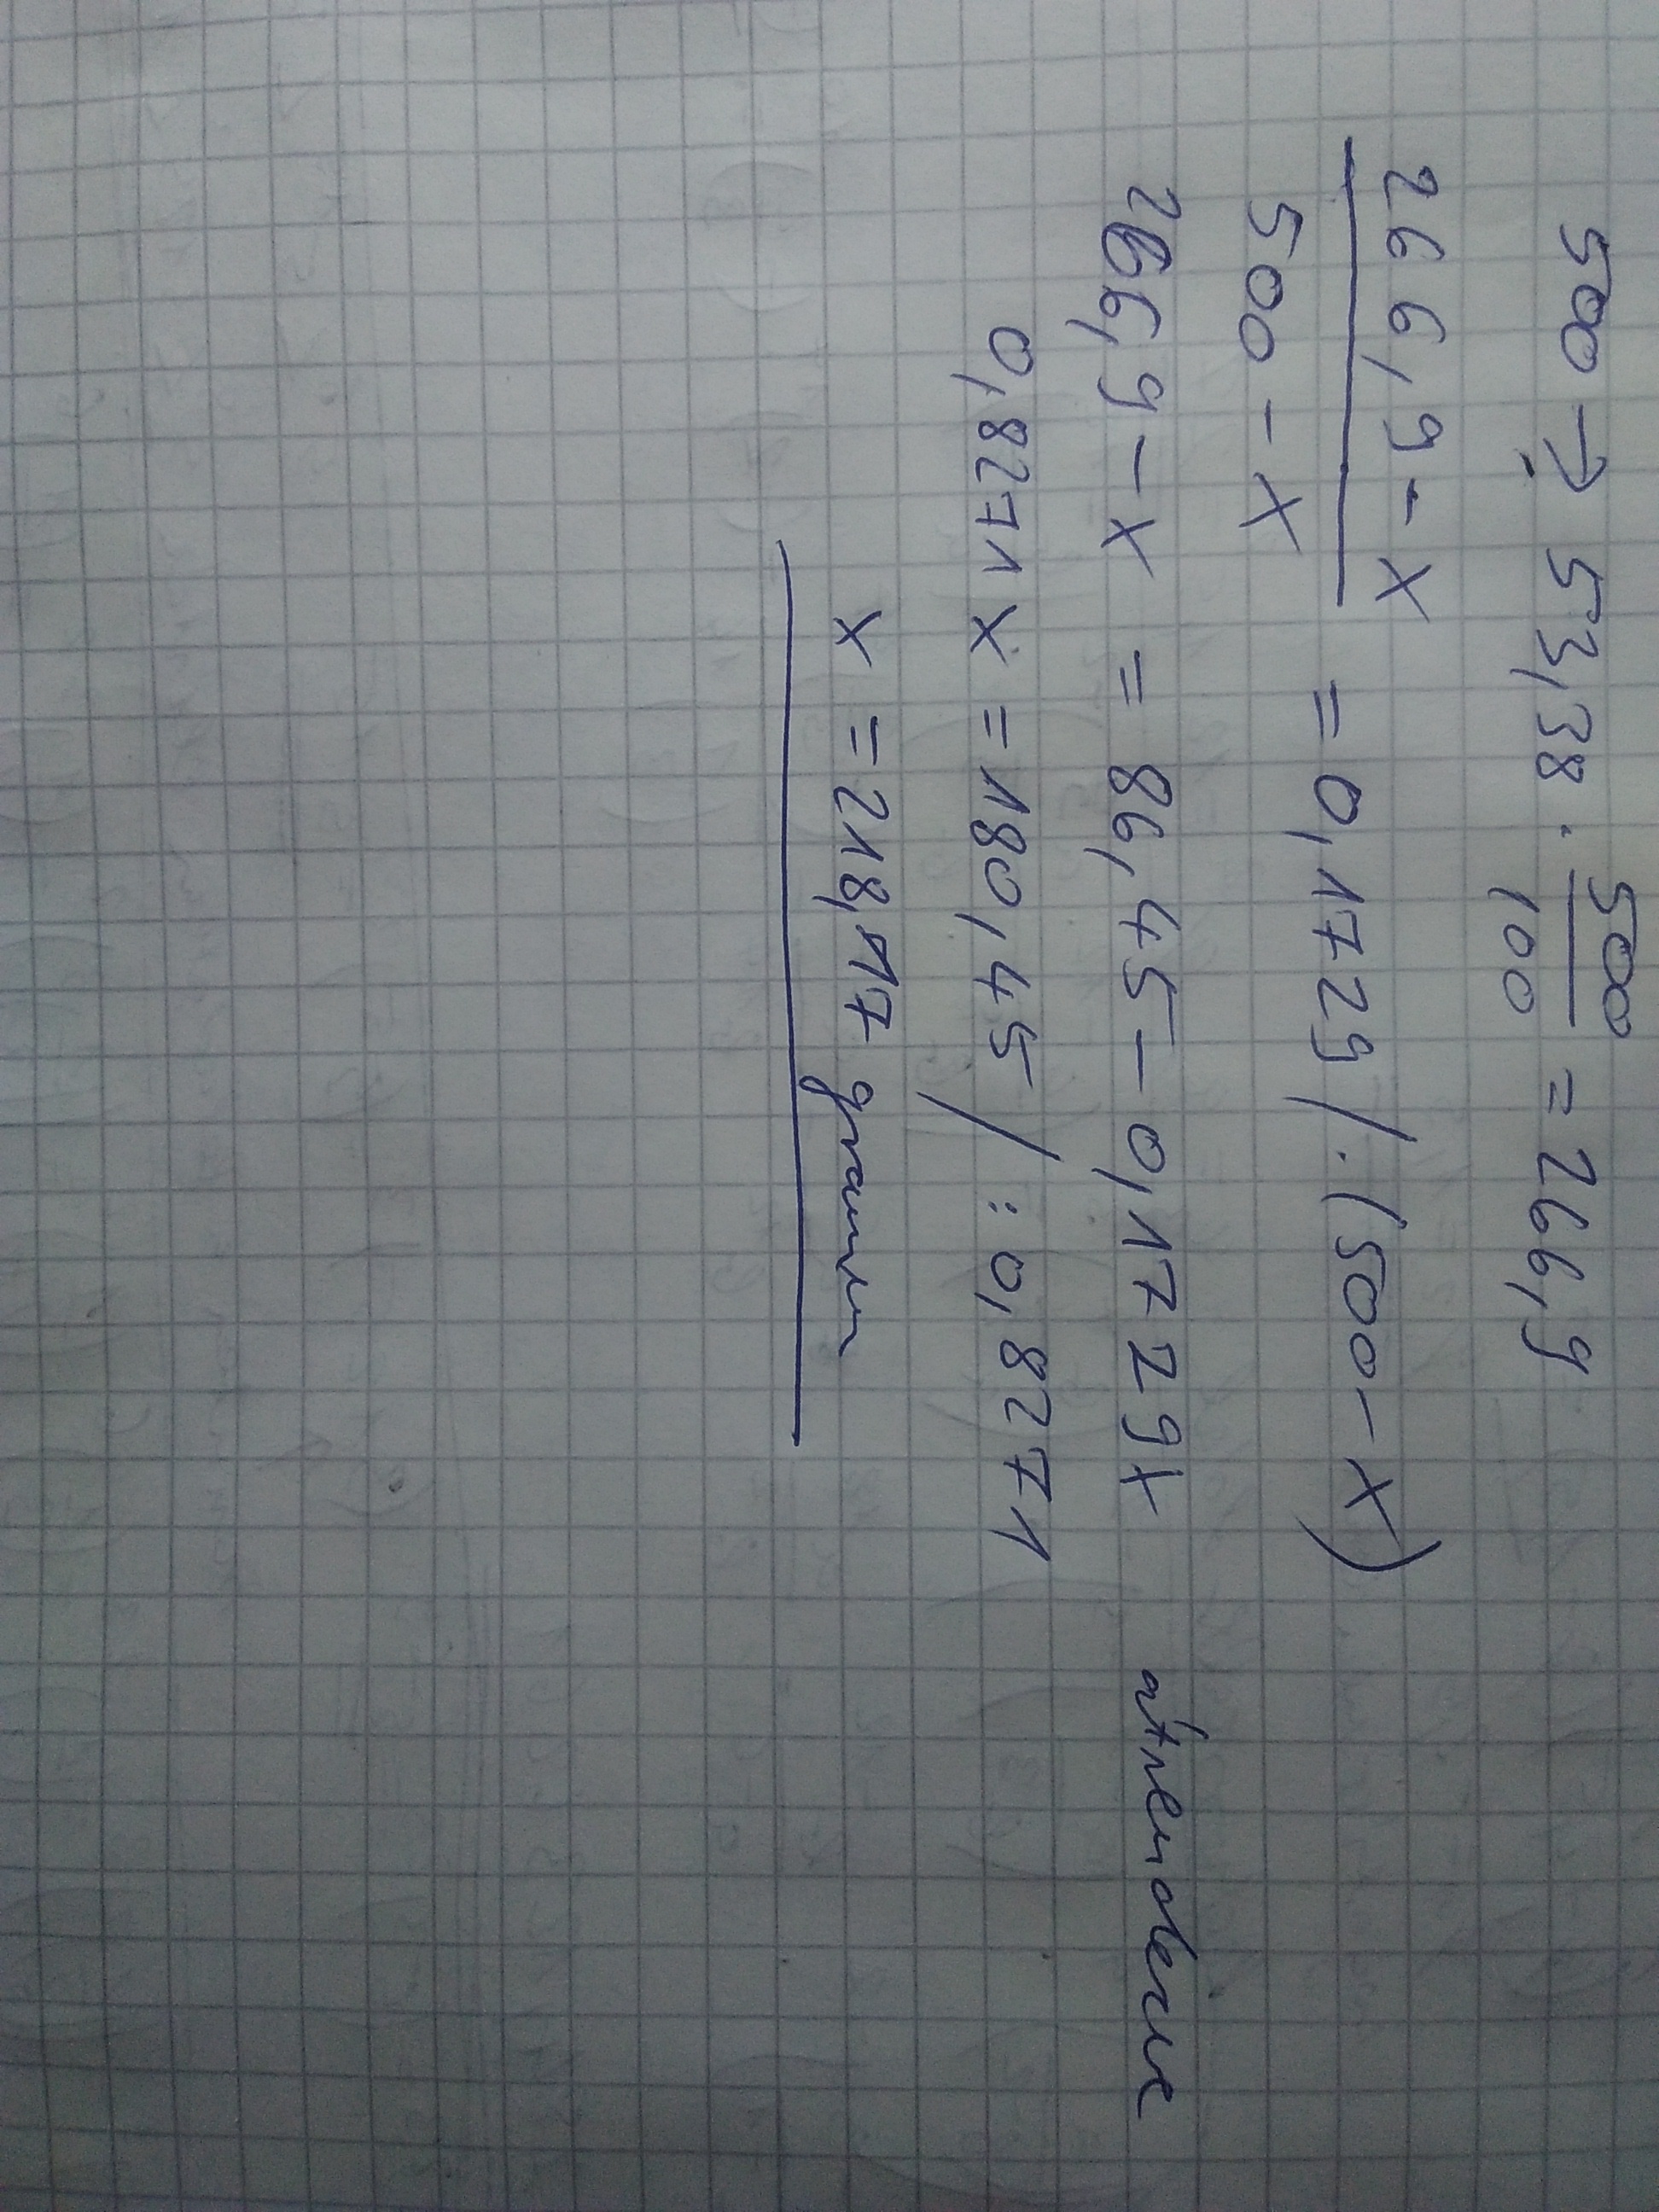 500 → 53,38 · 500/100 = 266,9
266,9 - x / 500 - x = 0,1729 /·(500 - x)
266,9 - x = 86,45 - 0,1729x átrendezve
0,8271 x = 180,45 / : 0,8271
x = 218,17 gramm